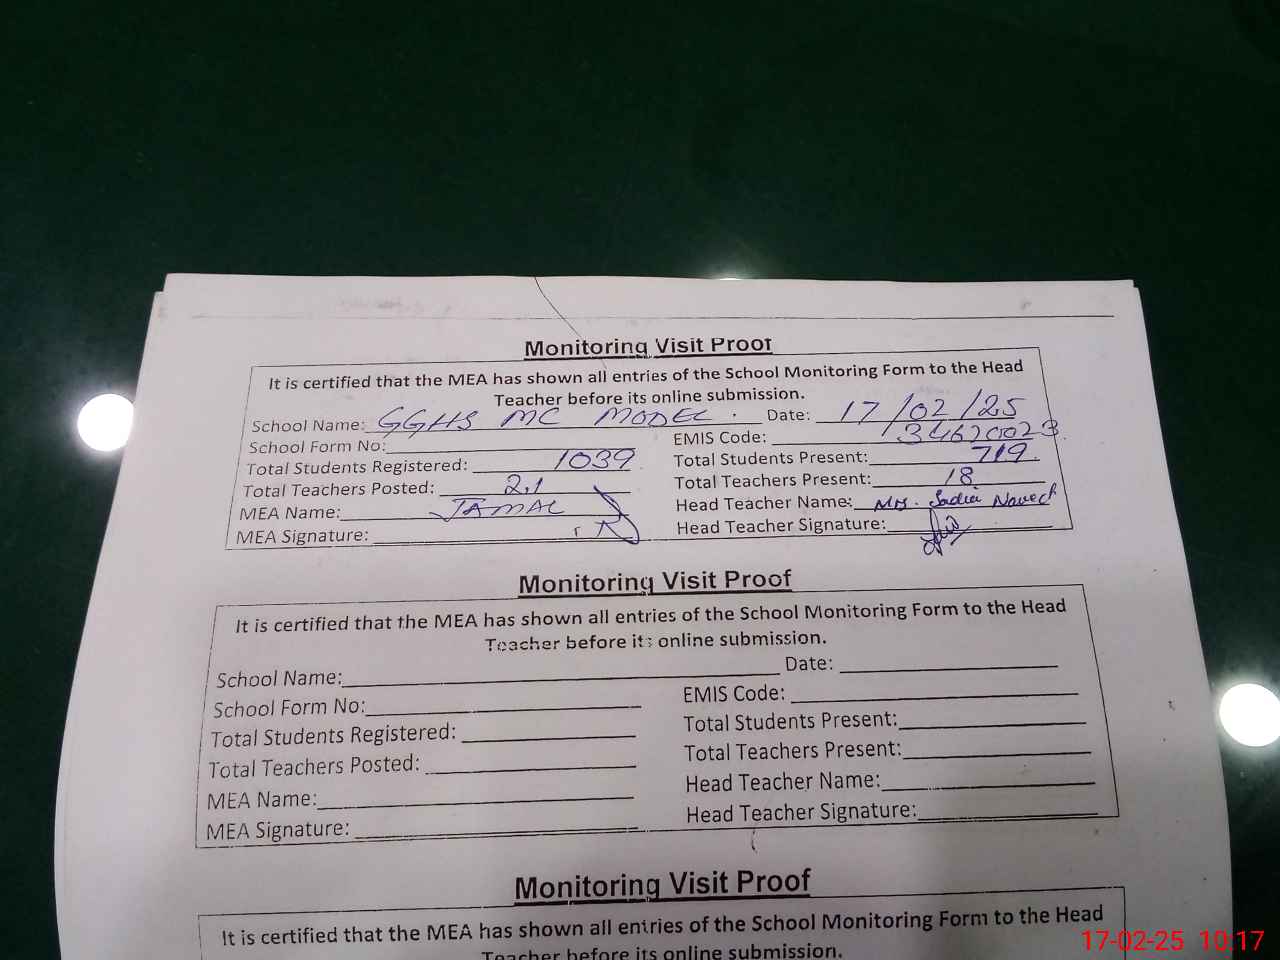 Monitoring Visit Proof
It is certified that the MEA has shown all entries of the School Monitoring Form to the Head
Teacher before its online submission.
School Name: GGHS MC MODEL. Date: 17/02/25
School Form No: EMIS Code: 34620023
Total Students Registered: 1039 Total Students Present: 719
Total Teachers Posted: 21 Total Teachers Present: 18
MEA Name: JAMAL Head Teacher Name: Mrs. Sadia Naveed
MEA Signature: Head Teacher Signature:
Monitoring Visit Proof
It is certified that the MEA has shown all entries of the School Monitoring Form to the Head
Teacher before its online submission.
School Name: Date:
School Form No: EMIS Code:
Total Students Registered: Total Students Present:
Total Teachers Posted: Total Teachers Present:
MEA Name: Head Teacher Name:
MEA Signature: Head Teacher Signature:
Monitoring Visit Proof
It is certified that the MEA has shown all entries of the School Monitoring Form to the Head
Teacher before its online submission.
17-02-25 10:17